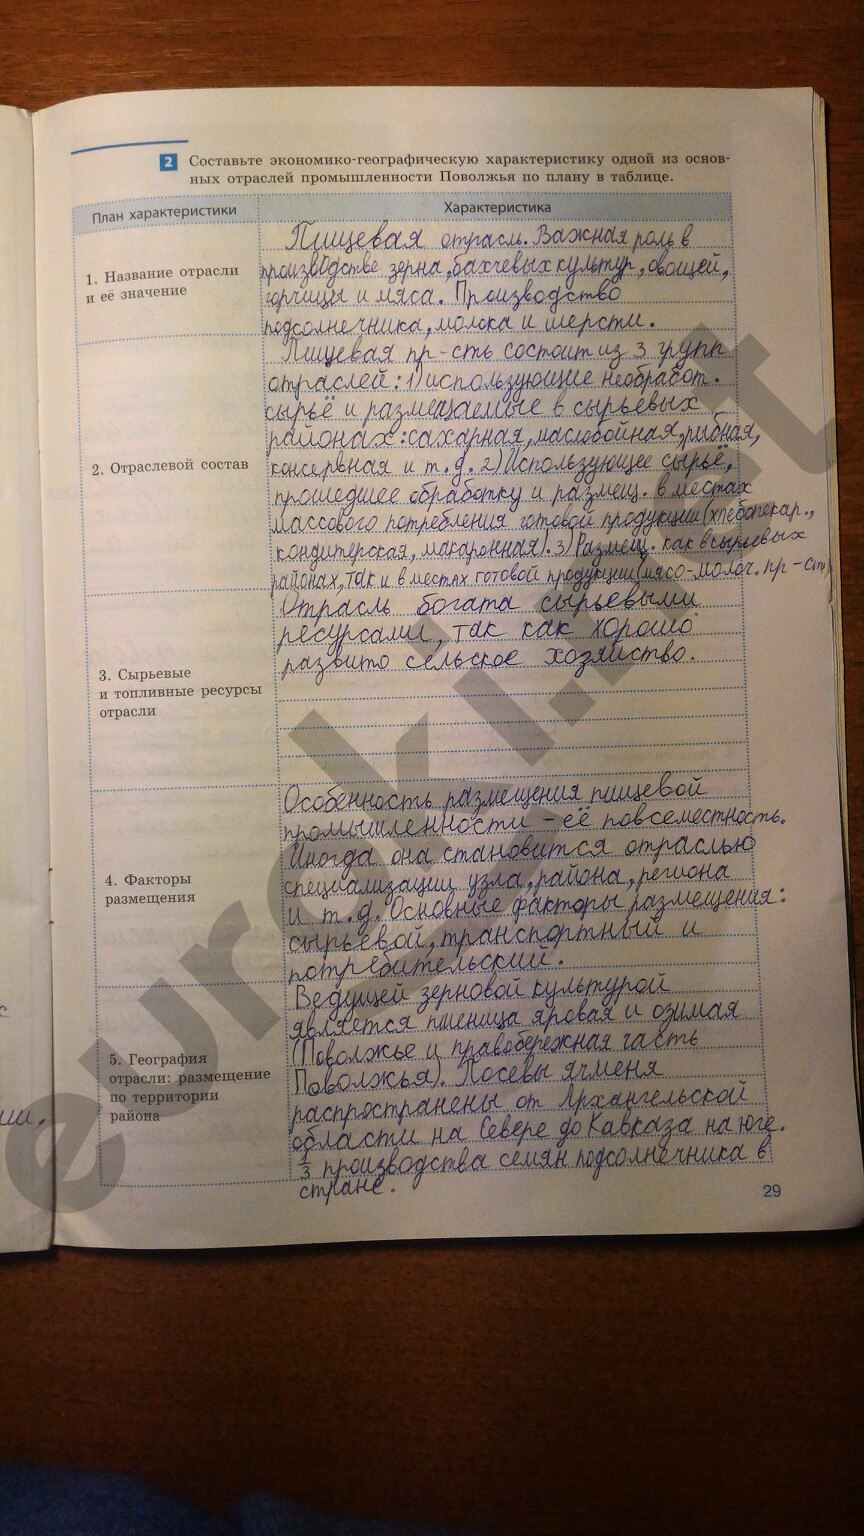 2 Составьте экономико-географическую характеристику одной из основ-
ных отраслей промышленности Поволжья по плану в таблице.
План характеристики
Характеристика
1. Название отрасли
и её значение
Пищевая отрасль. Важная роль в
производстве зерна, бахчевых культур, овощей,
горчицы и мяса. Производство
подсолнечника, молока и шерсти.
2. Отраслевой состав
Пищевая пр-сть состоит из 3 групп
отраслей: 1) использующие необработ.
сырьё и размещаемые в сырьевых
районах: сахарная, маслобойная, рыбная,
консервная и т.д. 2) Использующее сырьё,
прошедшее обработку и размещ. в местах
массового потребления готовой продукции (хлебопекар.,
кондитерская, макаронная). 3) Размещ. как в сырьевых
районах, так и в местах готовой продукции (мясо-молоч. пр-сть)
3. Сырьевые
и топливные ресурсы
отрасли
Отрасль богата сырьевыми
ресурсами, так как хорошо
развито сельское хозяйство.
4. Факторы
размещения
Особенность размещения пищевой
промышленности – её повсеместность.
Иногда она становится отраслью
специализации узла, района, региона
и т.д. Основные факторы размещения:
сырьевой, транспортный и
потребительский.
5. География
отрасли: размещение
по территории
района
Ведущей зерновой культурой
является пшеница яровая и озимая
(Поволжье и правобережная часть
Поволжья). Посевы ячменя
распространены от Архангельской
области на Севере до Кавказа на юге.
1/3 производства семян подсолнечника в
стране.
29
euroki.net